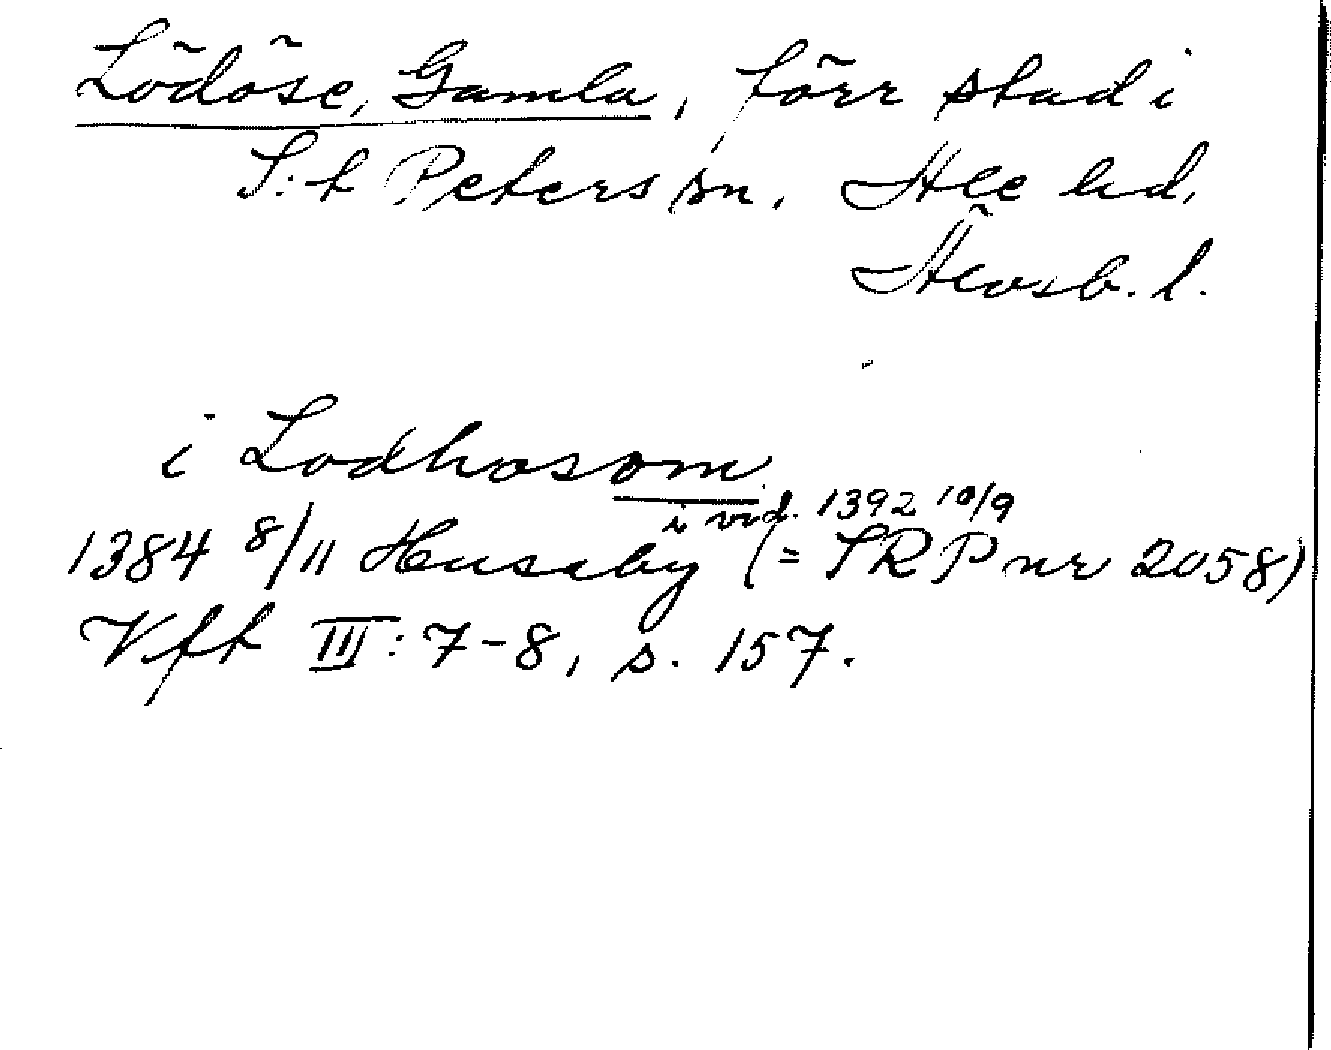 Lödöse, Gamla, förr stad i
S:t Peters sn. Ale hd,
Älvsb. l.
i Lodhosom
i vid. 1392 10/9
1384 8/11 Huseby (= SRP nr 2058)
Vft III: 7-8, s. 157.